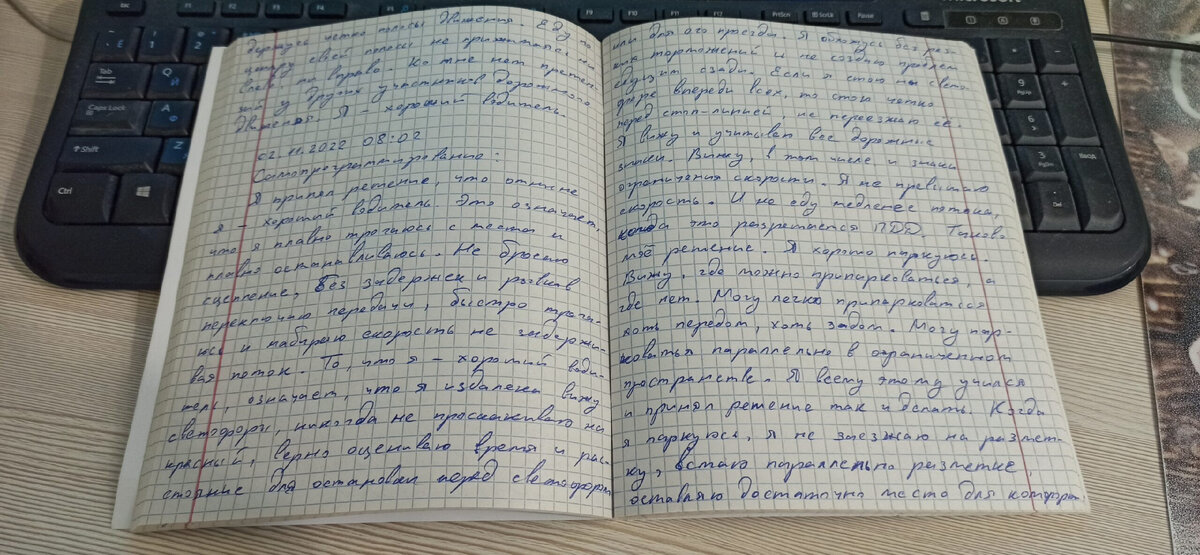 держусь четко полосы движения. Еду по
центру своей полосы не прижимаюсь ни
влево, ни вправо. Ко мне нет претен-
зий у других участников дорожного
движения. Я – хороший водитель.
02.11.2022 08:02
Самопрограммирование:
Я принял решение, что отныне
я – хороший водитель. Это означает,
что я плавно трогаюсь с места и
плавно останавливаюсь. Не бросаю
сцепление, Без задержек и рывков
переключаю передачи, быстро трога-
юсь и набираю скорость не задержи-
вая поток. То, что я – хороший води-
тель, означает, что я издалека вижу
светофоры, никогда не проскакиваю на
красный, верно оцениваю время и рас-
стояние для остановки перед светофором
или для его проезда. Я обхожусь без рез-
ких торможений и не создаю проблем
едущим сзади. Если я стою на свето-
форе впереди всех, то стою четко
перед стоп-линией, не переезжая её.
Я вижу и учитываю все дорожные
знаки. Вижу, в том числе и знаки
ограничения скорости. Я не превышаю
скорость. И не еду медленее потока,
когда это разрешается ПДД. Таково
моё решение. Я хорошо паркуюсь.
Вижу, где можно припарковаться, а
где нет. Могу легко припарковаться
хоть передом, хоть задом. Могу пар-
коваться параллельно в ограниченном
пространстве. Я всему этому учился
и принял решение так и делать. Когда
я паркуюсь, я не заезжаю на размет-
ку, встаю параллельно разметке,
оставляю достаточно места для комфорт-
Esc
F9
F10
F11
F12
PrtScn
ScrLk
Pause
Microsoft
Tab
Caps Lock
Shift
Ctrl
Ввод